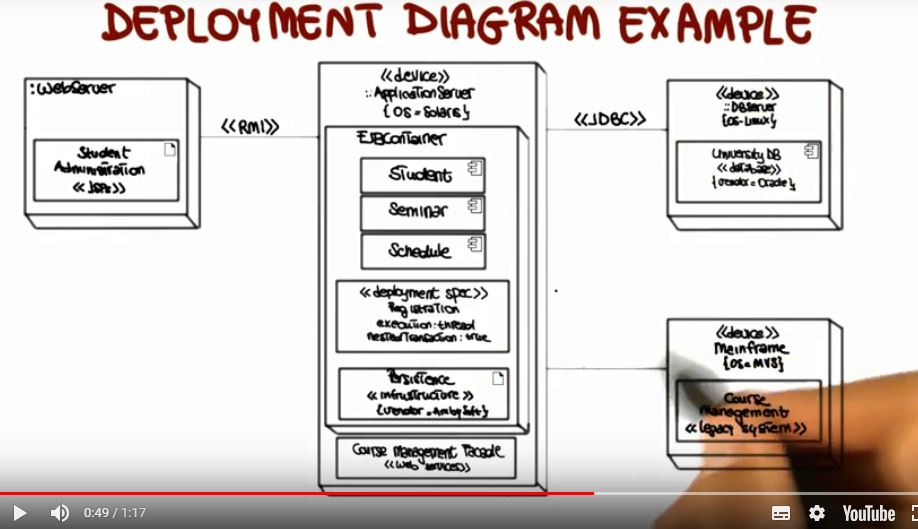 DEPLOYMENT DIAGRAM EXAMPLE
:WebServer
Student
Administration
<<JSPs>>
<<RMI>>
<<device>>
::ApplicationServer
{OS=Solaris}
EJBContainer
Student
Seminar
Schedule
<<deployment spec>>
Registration
execution:thread
nestedTransaction:true
Persistence
<<infrastructure>>
{vendor=AmbySoft}
Course Management Facade
<<web services>>
<<JDBC>>
<<device>>
::DBServer
{OS=Linux}
University DB
<<database>>
{vendor=Oracle}
<<device>>
Mainframe
{OS=MVS}
Course
Management
<<legacy system>>
0:49 / 1:17
YouTube